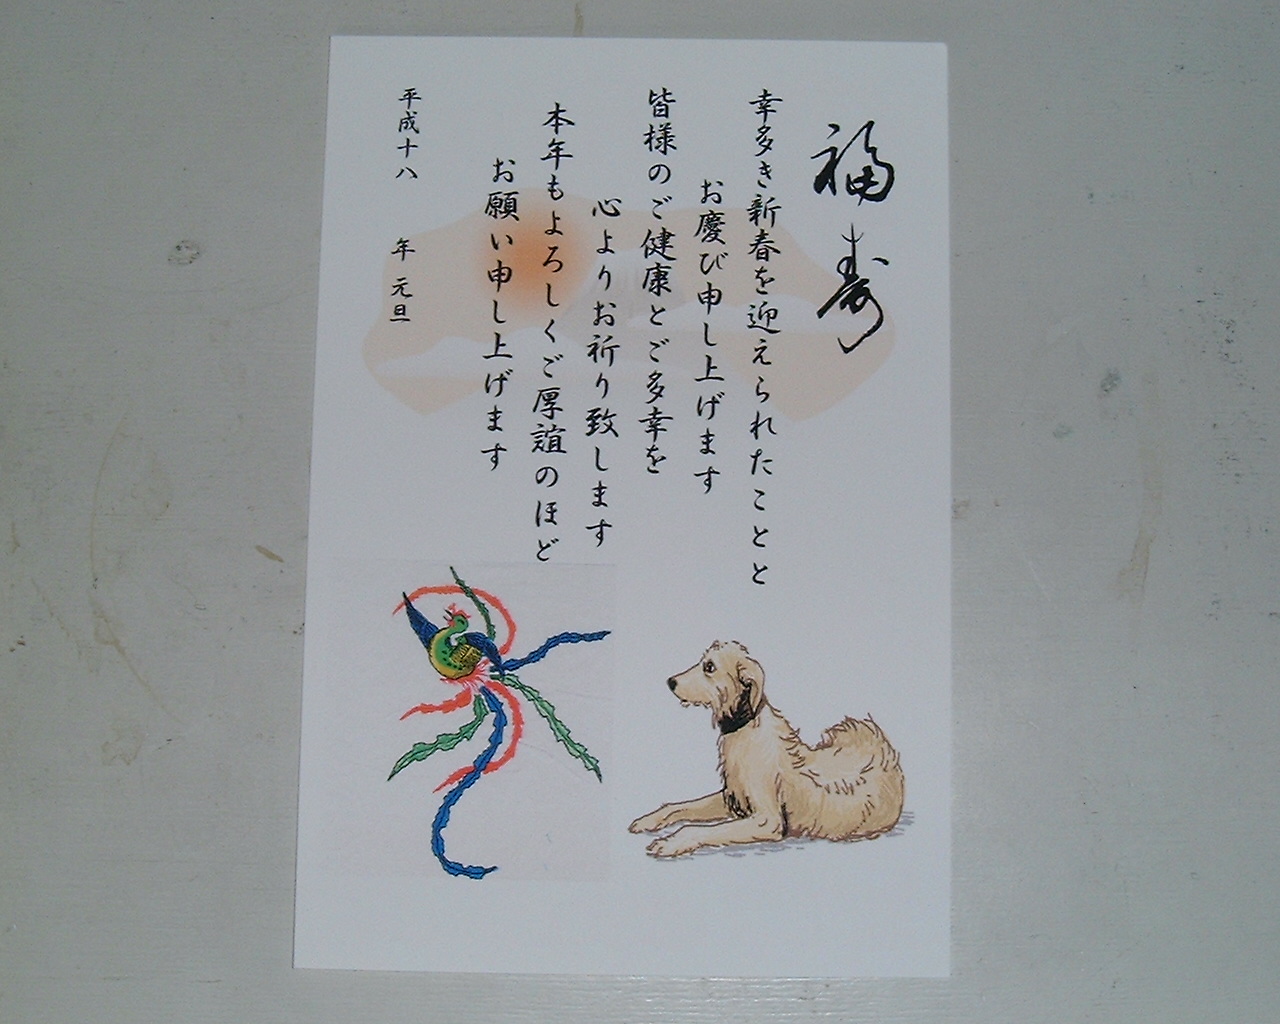 福寿
幸多き新春を迎えられたことと
お慶び申し上げます
皆様のご健康とご多幸を
心よりお祈り致します
本年もよろしくご厚誼のほど
お願い申し上げます
平成十八 年 元旦